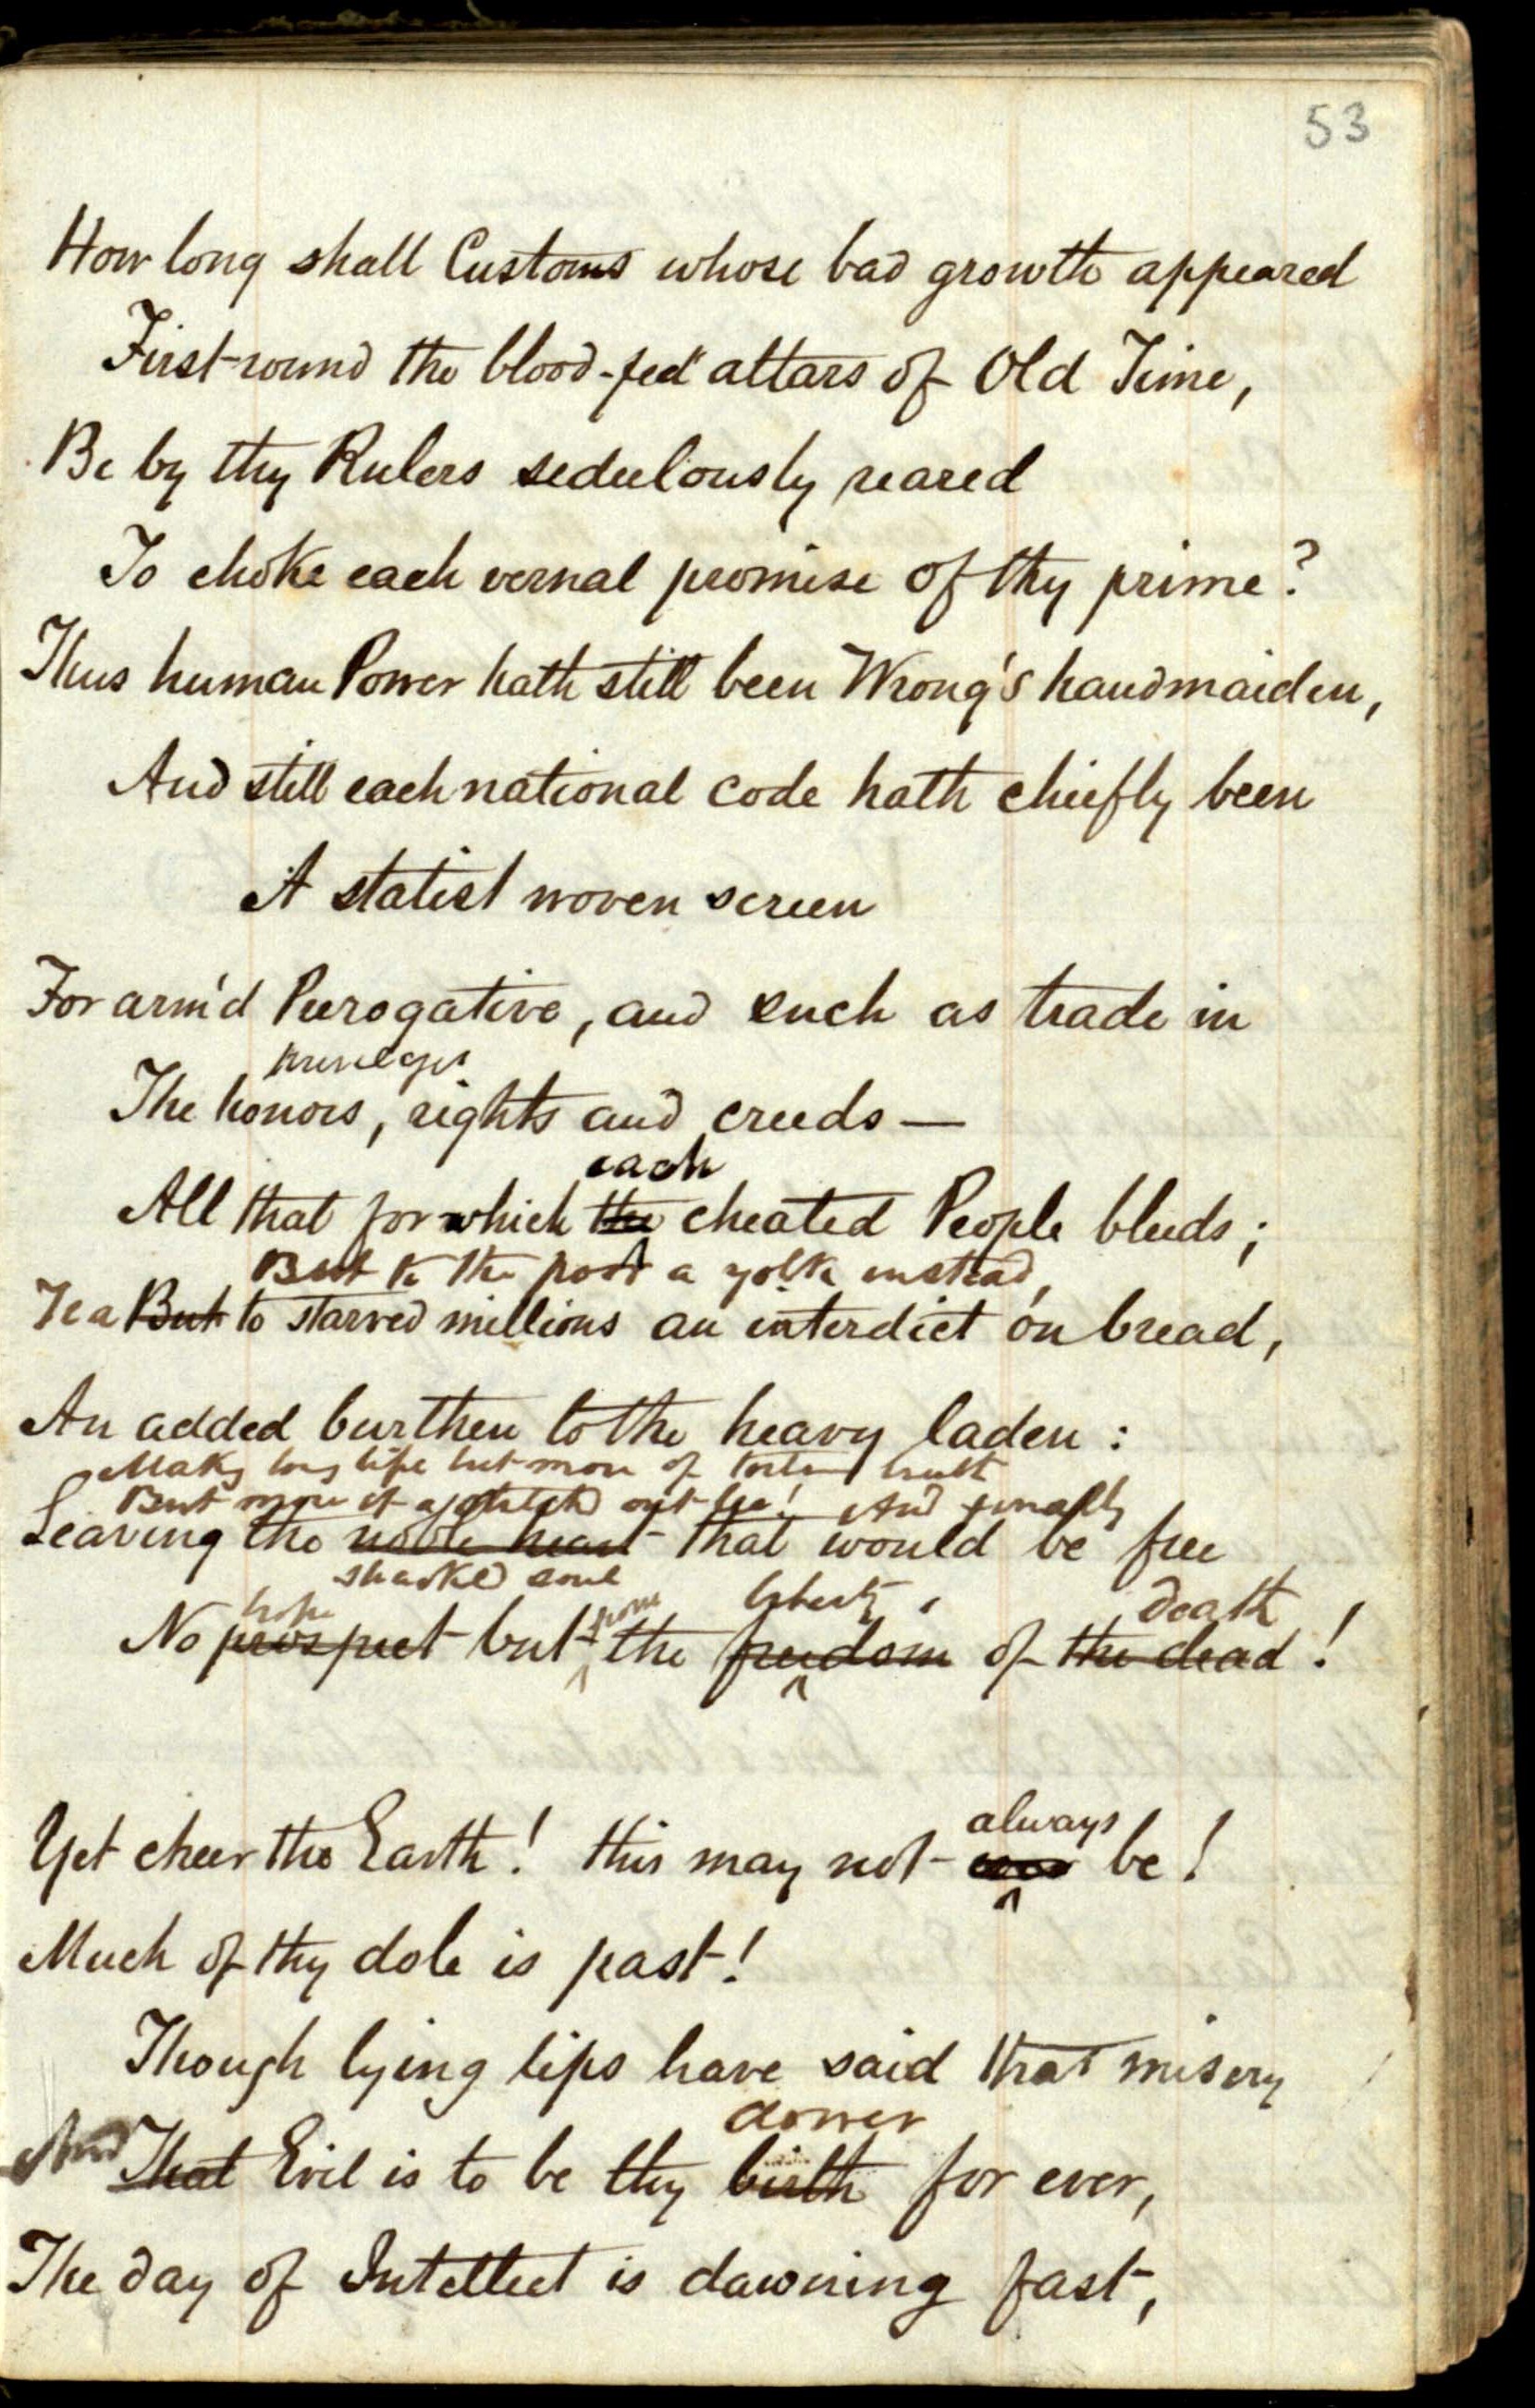 53
How long shall Customs whose bad growth appeared
First round the blood-fed altars of Old Time,
Be by thy Rulers sedulously reared
To choke each vernal promise of thy prime?
Thus human Power hath still been Wrong's handmaiden,
And still each national code hath chiefly been
A statist woven screen
For arm'd Prerogative, and such as trade in
privileges
The honors, rights and creeds —
each
All that for which the cheated People bleeds;
But to the poor a yolk instead,
Yea But to starved millions an interdict on bread,
An added burthen to the heavy laden:
Making long life but more of
But more of a out And finally
Leaving the noble heart that would be free
shackled soul
hope from liberty, death
No prospect but the freedom of the dead!
always
Yet cheer the Earth! this may not ever be!
Much of thy dole is past!
Though lying lips have said that misery
dower
And That Evil is to be thy birth for ever,
The day of Intellect is dawning fast,